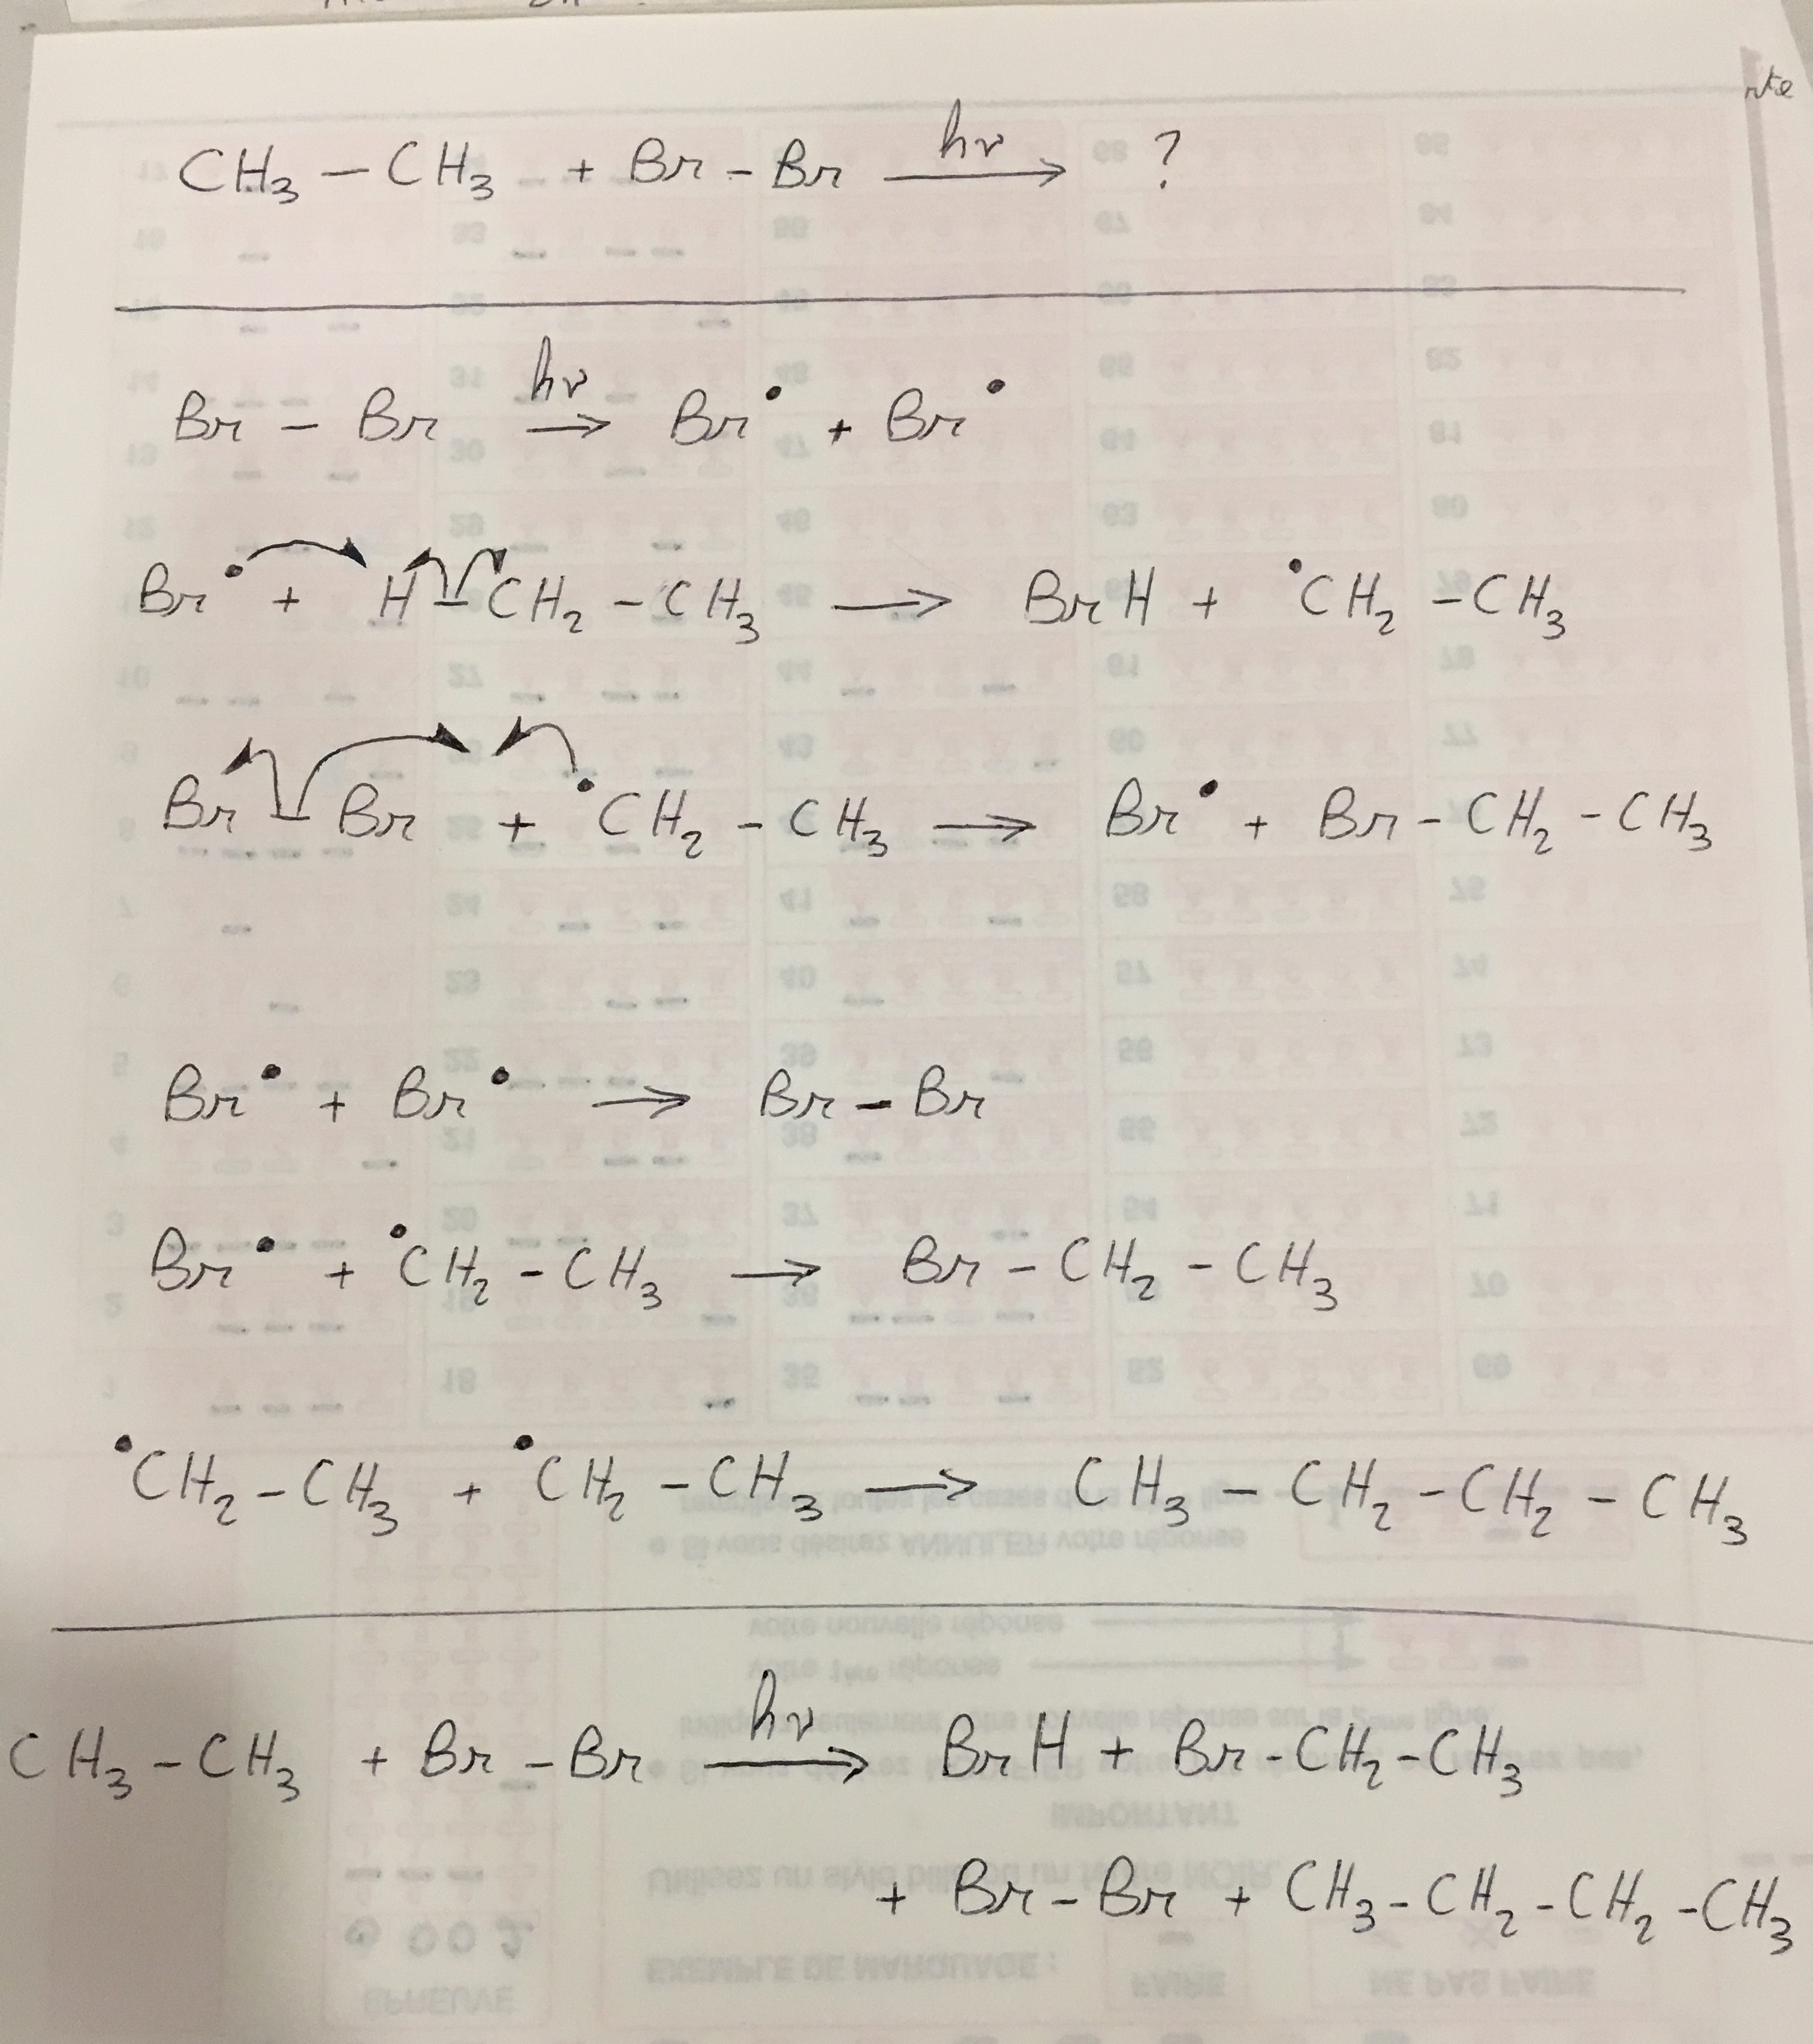 CH₃ – CH₃ + Br – Br hν → ?
Br – Br hν → Br• + Br•
Br• + H – CH₂ – CH₃ → BrH + •CH₂ – CH₃
Br – Br + •CH₂ – CH₃ → Br• + Br – CH₂ – CH₃
Br• + Br• → Br – Br
Br• + •CH₂ – CH₃ → Br – CH₂ – CH₃
•CH₂ – CH₃ + •CH₂ – CH₃ → CH₃ – CH₂ – CH₂ – CH₃
CH₃ – CH₃ + Br – Br hν → BrH + Br – CH₂ – CH₃
+ Br – Br + CH₃ – CH₂ – CH₂ – CH₃